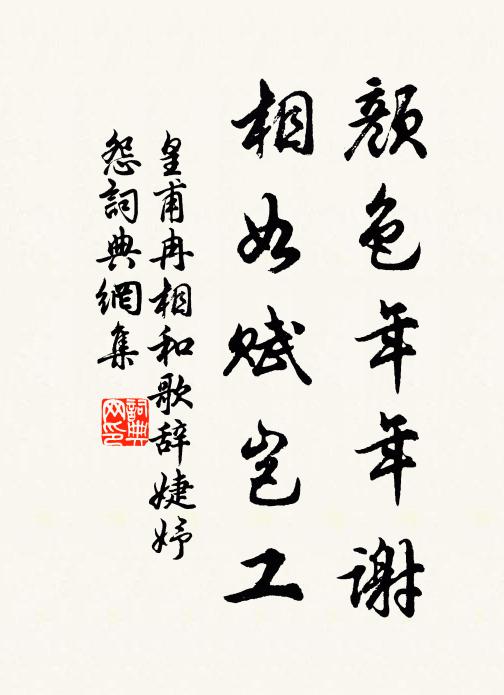 颜色年年谢
相如赋岂工
皇甫冉相和歌辞婕妤
怨詞典網集
詞典
网印